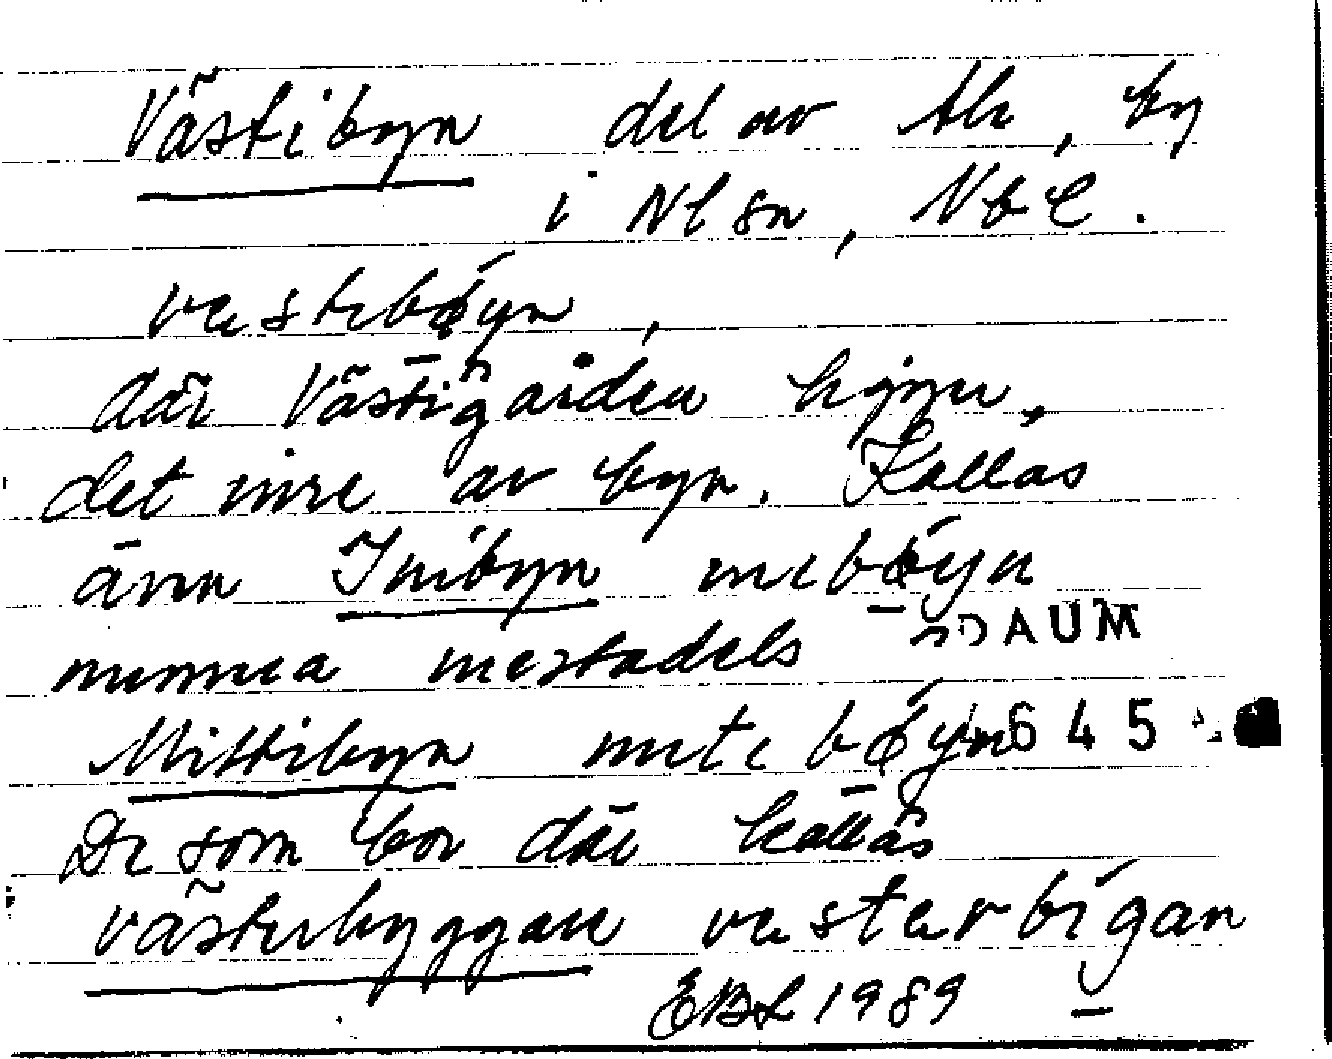 Västibyn del av Ak, by
i Nl sn, Vbl.
vesteböyn,
där Västigården ligger,
det inre av byn. Kallas
även Inibyn ineböyn
numera mestadels DAUM
Mittibyn miteböyn 645
De som bor där kallas
västerbyggare vesterbigar
EBL 1989